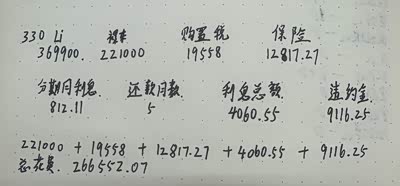 330 Li 裸车 购置税 保险
369900. 221000 19558 12817.27
分期月利息. 还款月数. 利息总额. 违约金.
812.11 5 4060.55 9116.25
221000 + 19558 + 12817.27 + 4060.55 + 9116.25
总花费. 266552.07